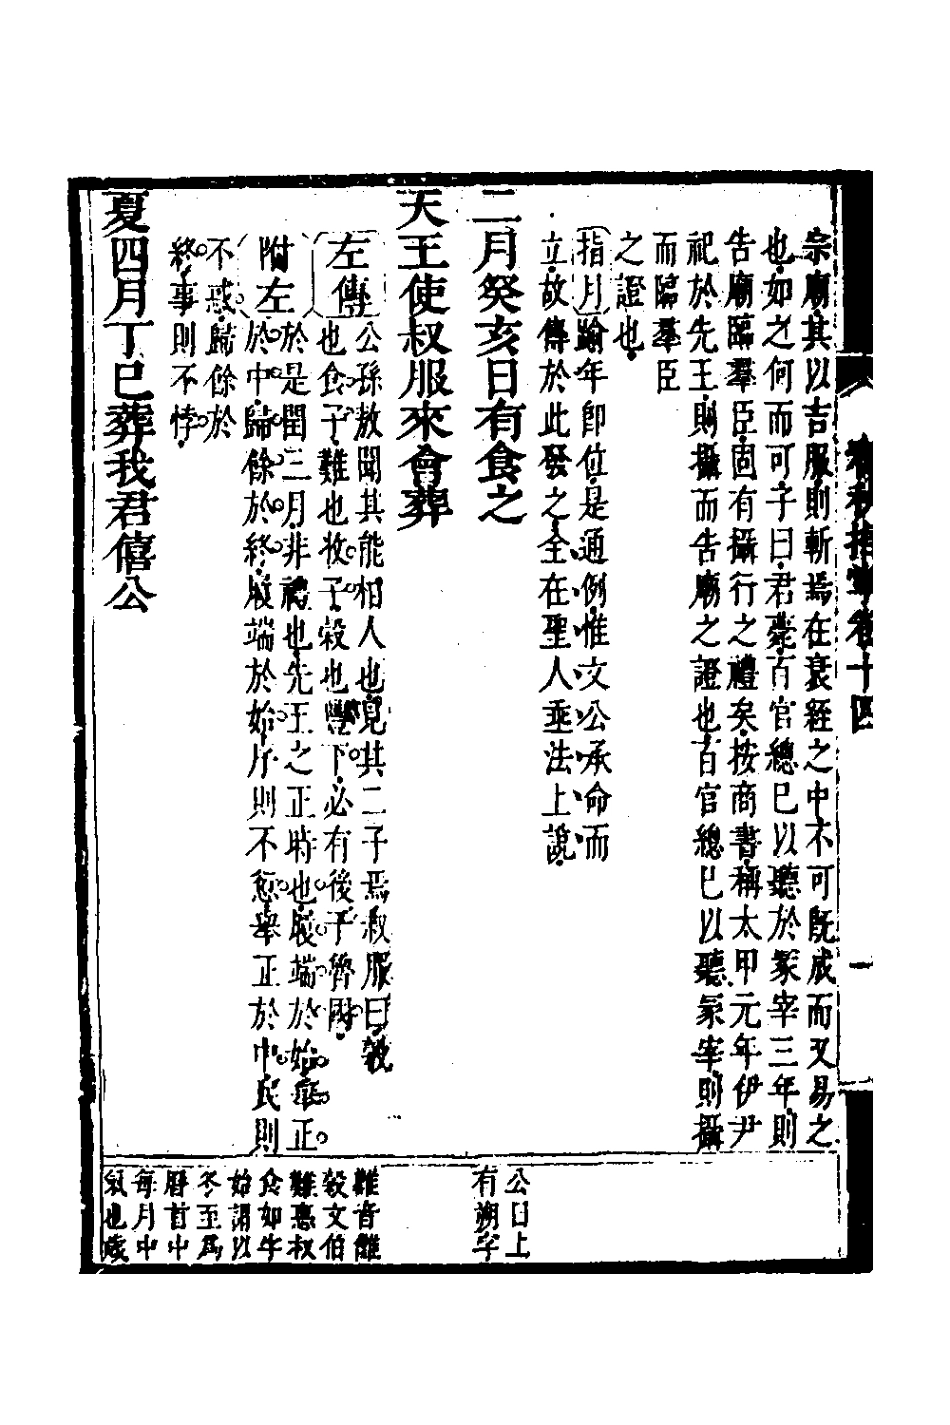 宗廟其以吉服則斬焉在衰絰之中不可既成而又易之
也如之何而可子曰君薨百官總已以聽於冢宰三年則
告廟臨羣臣固有攝行之禮矣按商書稱太甲元年伊尹
祀於先王則攝而告廟之證也百官總已以聽冢宰則攝
而臨羣臣
之證也
指月踰年卽位是通例惟文公承命而
立故傳於此發之全在聖人垂法上說
二月癸亥日有食之
天王使叔服來會葬
左傳
公孫敖聞其能相人也見其二子焉叔服曰穀
也食子難也收子穀也豐下必有後于魯國
附左
於是閏三月非禮也先王之正時也履端於始舉正
於中歸餘於終履端於始序則不愆舉正於中民則
不惑歸餘於
終事則不悖
夏四月丁巳葬我君僖公
春秋指掌卷十四
一
公曰上
有朔字
難音離
穀文伯
難惠叔
食如字
始謂以
冬至爲
曆首中
每月中
氣也歲